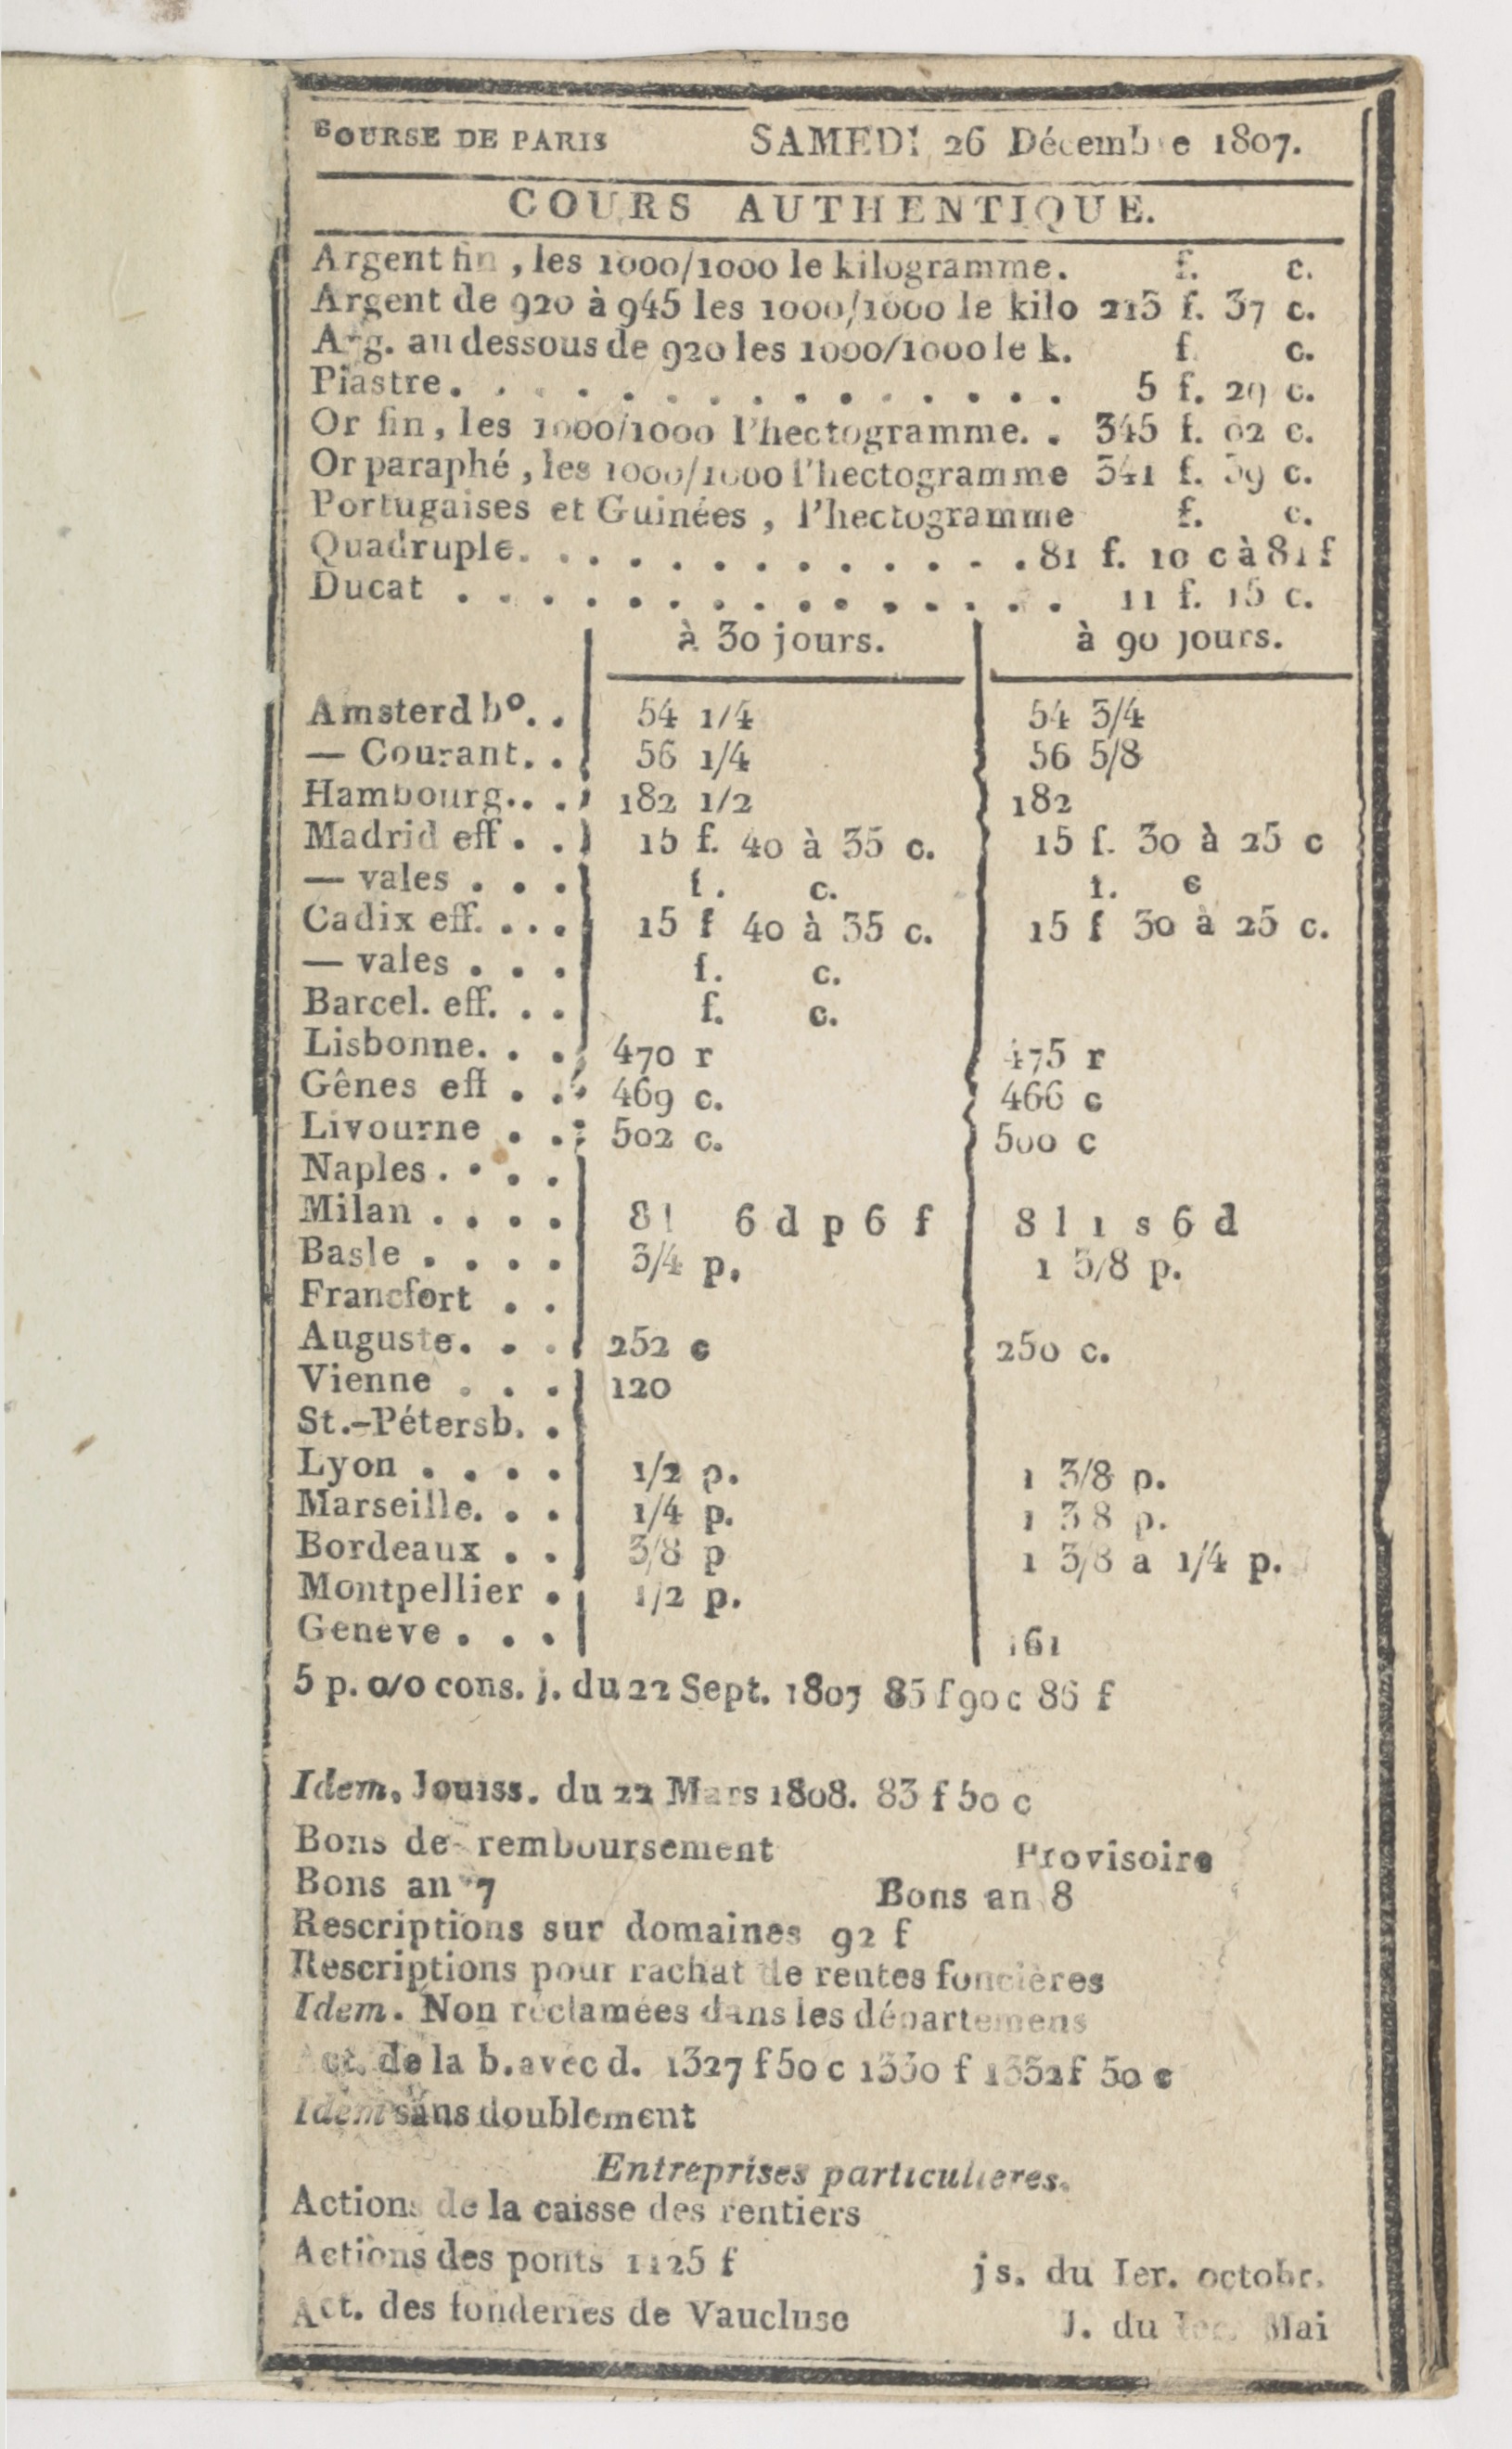 BOURSE DE PARIS SAMEDI 26 Décembre 1807.
COURS AUTHENTIQUE.
Argent fin, les 1000/1000 le kilogramme. f. c.
Argent de 920 à 945 les 1000/1000 le kilo 213 f. 37 c.
Arg. au dessous de 920 les 1000/1000 le k. f. c.
Piastre. . . . . . . . . . . . . . . 5 f. 29 c.
Or fin, les 1000/1000 l'hectogramme. . 345 f. 62 c.
Or paraphé, les 1000/1000 l'hectogramme 341 f. 39 c.
Portugaises et Guinées, l'hectogramme f. c.
Quadruple. . . . . . . . . . . . . 81 f. 10 c à 81 f
Ducat . . . . . . . . . . . . . . . 11 f. 15 c.
à 30 jours. à 90 jours.
Amsterd bº. . 54 1/4 54 3/4
— Courant. . 56 1/4 56 5/8
Hambourg. . . 182 1/2 182
Madrid eff . . 15 f. 40 à 35 c. 15 f. 30 à 25 c
— vales . . . f. c. f. c
Cadix eff. . . . 15 f 40 à 35 c. 15 f 30 à 25 c.
— vales . . . f. c.
Barcel. eff. . . f. c.
Lisbonne. . . 470 r 475 r
Gênes eff . . 469 c. 466 c
Livourne . . 502 c. 500 c
Naples. . . .
Milan . . . . 8 l 6 d p 6 f 8 l 1 s 6 d
Basle . . . . 3/4 p. 1 3/8 p.
Francfort . .
Auguste. . . 252 c 250 c.
Vienne . . . 120
St.-Pétersb. .
Lyon . . . . 1/2 p. 1 3/8 p.
Marseille. . . 1/4 p. 1 3 8 p.
Bordeaux . . 3/8 p 1 3/8 a 1/4 p.
Montpellier . 1/2 p.
Geneve . . . 161
5 p. o/o cons. j. du 22 Sept. 1807 85 f 90 c 86 f
Idem, Jouiss. du 22 Mars 1808. 83 f 50 c
Bons de remboursement Provisoire
Bons an 7 Bons an 8
Rescriptions sur domaines 92 f
Rescriptions pour rachat de rentes foncières
Idem. Non réclamées dans les départemens
Act. de la b. avec d. 1327 f 50 c 1330 f 1332 f 50 c
Idem sans doublement
Entreprises particulieres.
Actions de la caisse des rentiers
Actions des ponts 1125 f js. du Ier. octobr.
Act. des fonderies de Vaucluse J. du Ier. Mai